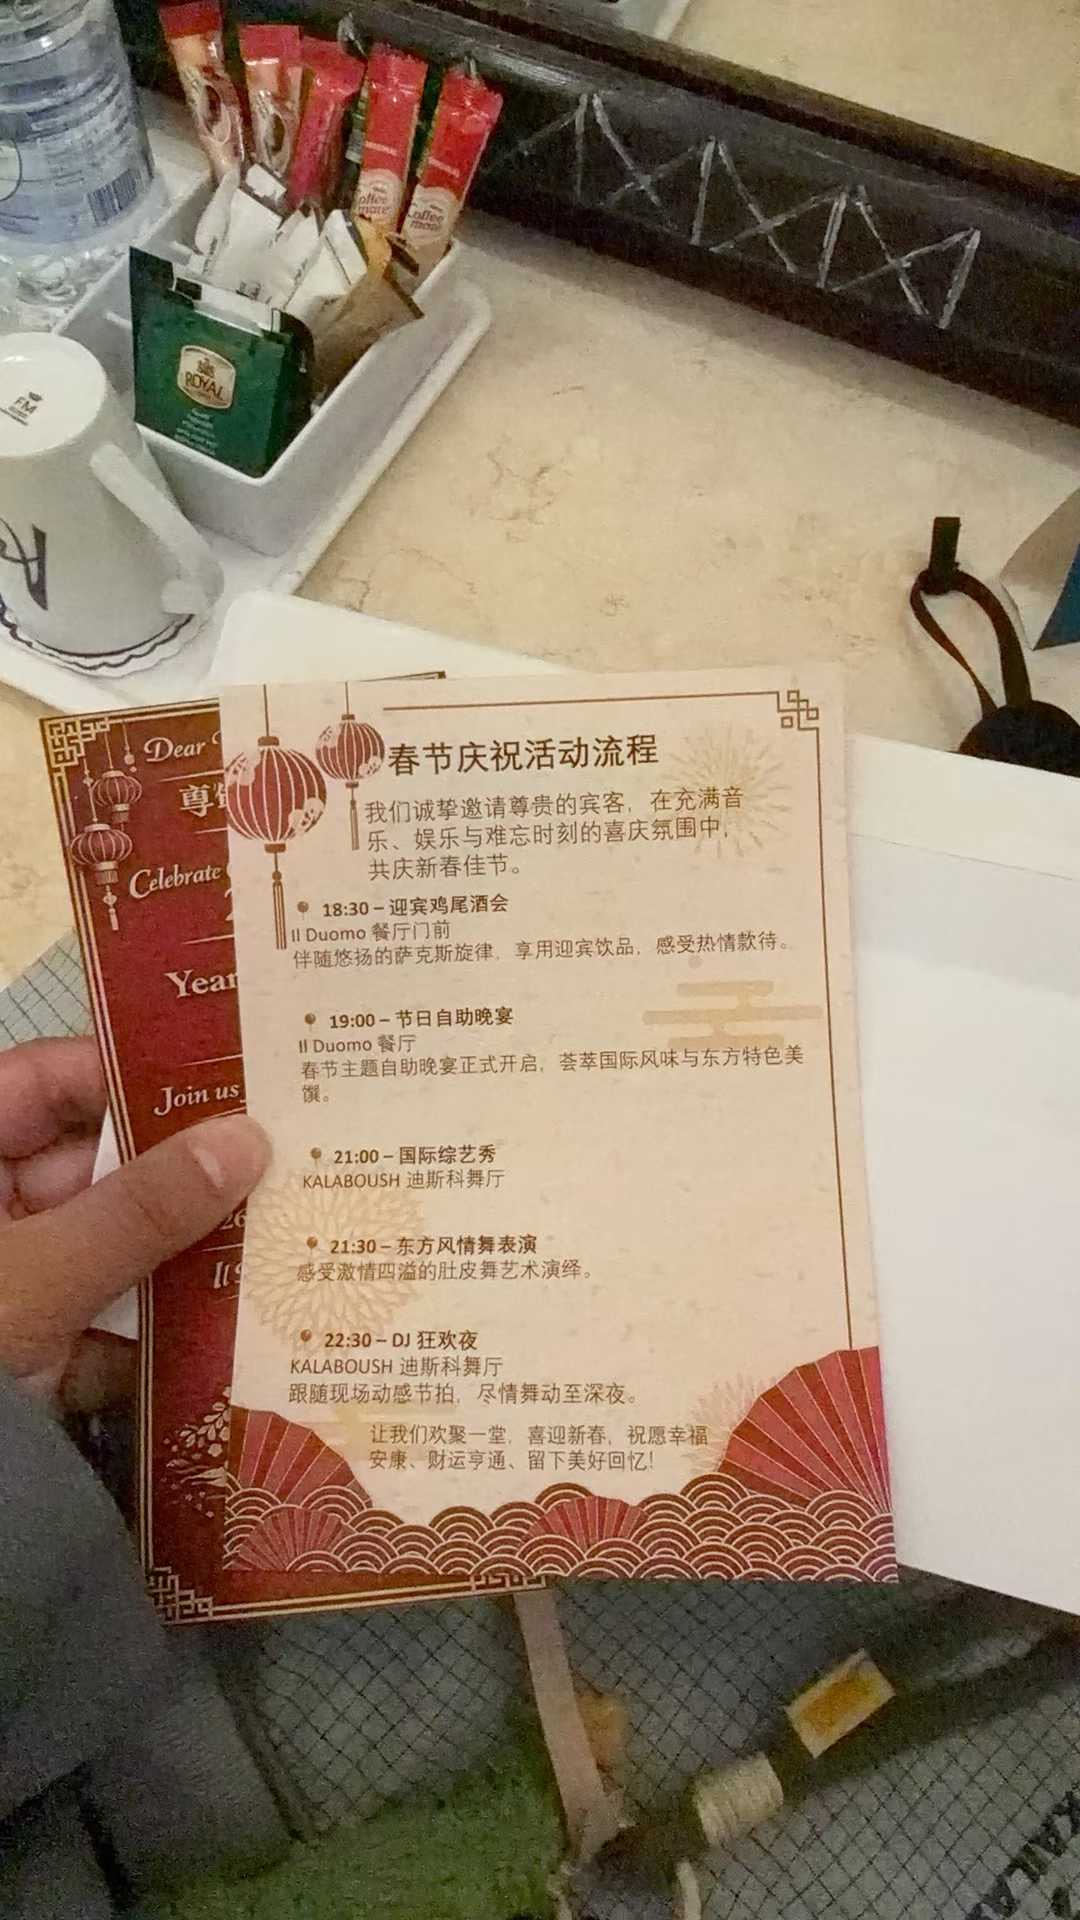 ORIGINAL
Coffee mate
Coffee mate
ROYAL
FM
Dear
尊
Celebrate
Year
Join us
春节庆祝活动流程
我们诚挚邀请尊贵的宾客，在充满音
乐、娱乐与难忘时刻的喜庆氛围中，
共庆新春佳节。
18:30 – 迎宾鸡尾酒会
Il Duomo 餐厅门前
伴随悠扬的萨克斯旋律，享用迎宾饮品，感受热情款待。
19:00 – 节日自助晚宴
Il Duomo 餐厅
春节主题自助晚宴正式开启，荟萃国际风味与东方特色美
馔。
21:00 – 国际综艺秀
KALABOUSH 迪斯科舞厅
21:30 – 东方风情舞表演
感受激情四溢的肚皮舞艺术演绎。
22:30 – DJ 狂欢夜
KALABOUSH 迪斯科舞厅
跟随现场动感节拍，尽情舞动至深夜。
让我们欢聚一堂，喜迎新春，祝愿幸福
安康、财运亨通、留下美好回忆！